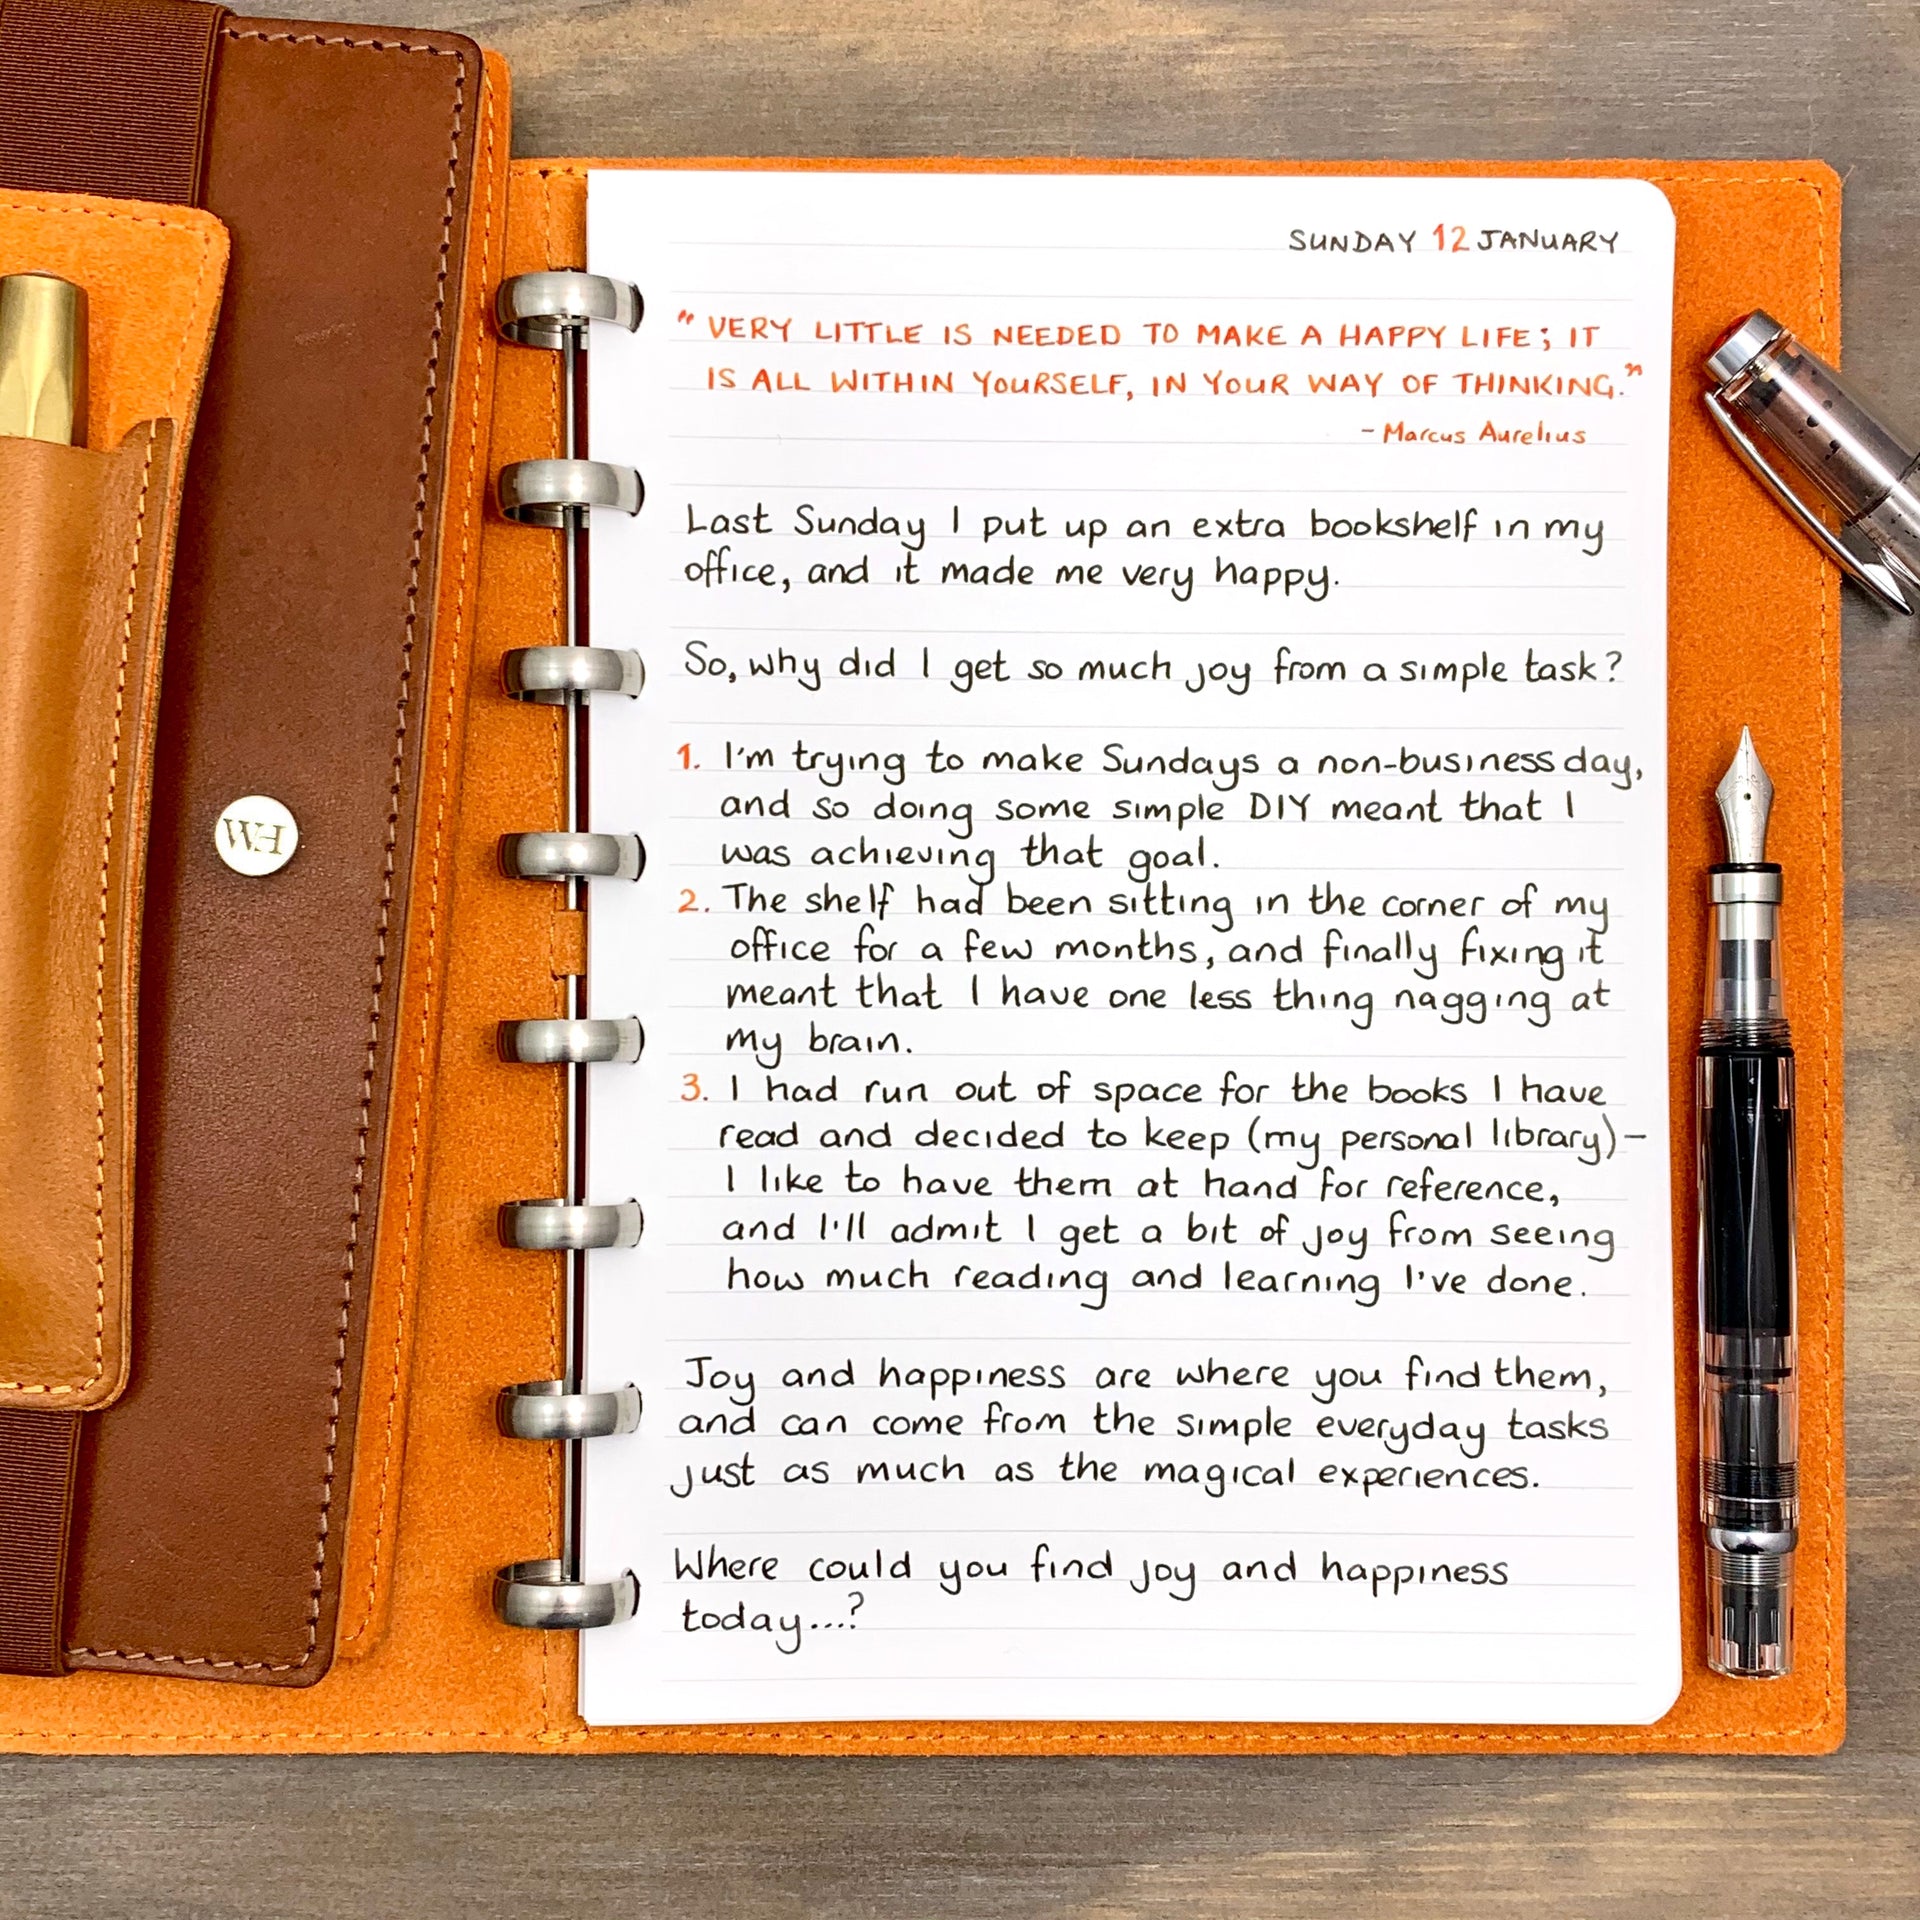 WH
SUNDAY 12 JANUARY
"VERY LITTLE IS NEEDED TO MAKE A HAPPY LIFE; IT
IS ALL WITHIN YOURSELF, IN YOUR WAY OF THINKING."
- Marcus Aurelius
Last Sunday I put up an extra bookshelf in my
office, and it made me very happy.
So, why did I get so much joy from a simple task?
1. I'm trying to make Sundays a non-business day,
and so doing some simple DIY meant that I
was achieving that goal.
2. The shelf had been sitting in the corner of my
office for a few months, and finally fixing it
meant that I have one less thing nagging at
my brain.
3. I had run out of space for the books I have
read and decided to keep (my personal library) -
I like to have them at hand for reference,
and I'll admit I get a bit of joy from seeing
how much reading and learning I've done.
Joy and happiness are where you find them,
and can come from the simple everyday tasks
just as much as the magical experiences.
Where could you find joy and happiness
today...?